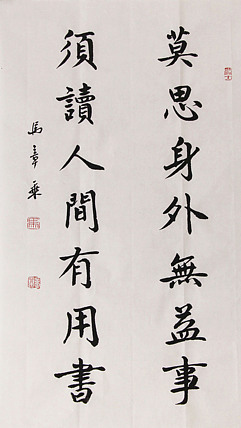 莫思身外無益事
須讀人間有用書
馬章乘